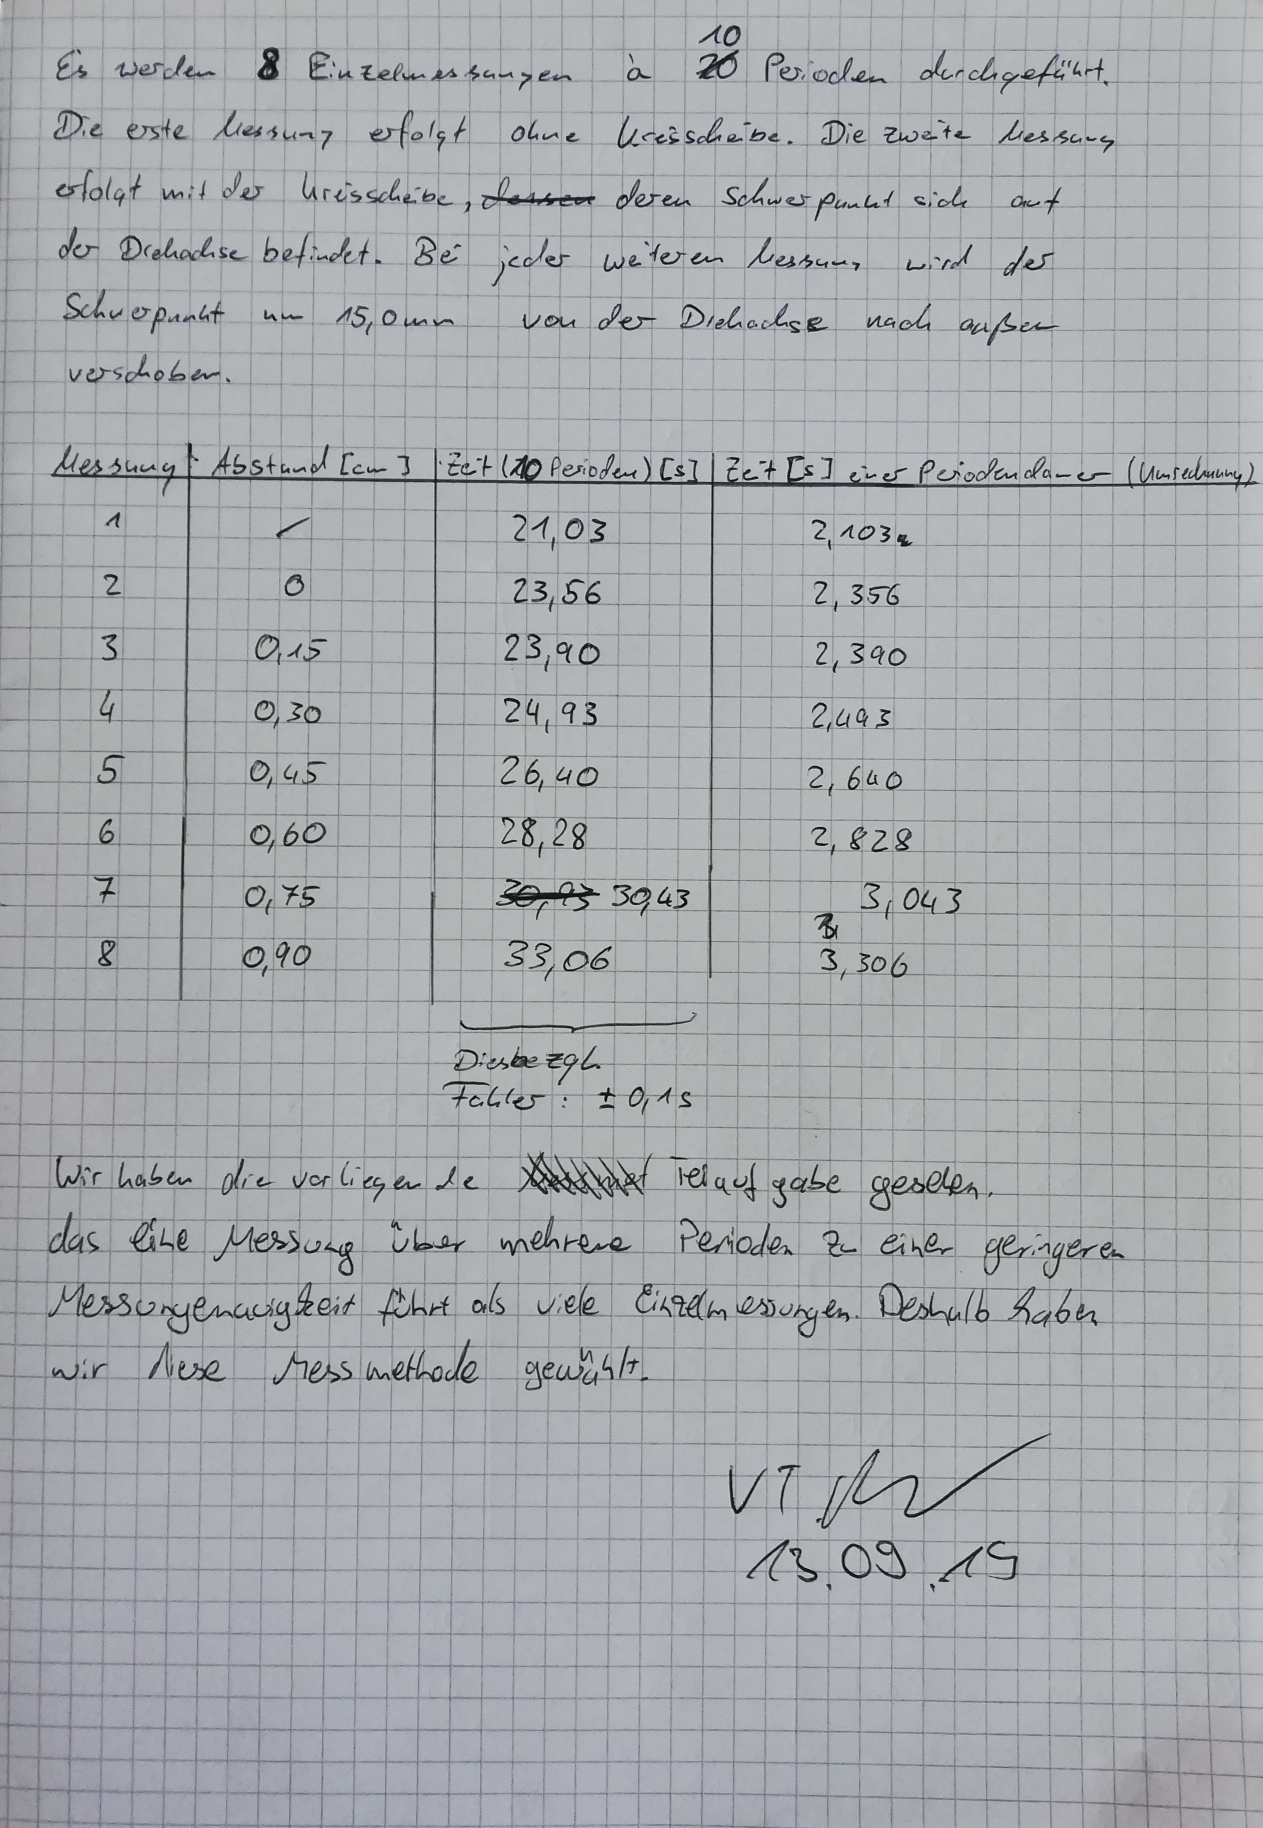 10
Es werden 8 Einzelmessungen à 20 Perioden durchgeführt.
Die erste Messung erfolgt ohne Kreisscheibe. Die zweite Messung
erfolgt mit der Kreisscheibe, dessen deren Schwerpunkt sich auf
der Drehachse befindet. Bei jeder weiteren Messung wird der
Schwerpunkt um 15,0mm von der Drehachse nach außen
verschoben.
Messung Abstand [cm] Zeit (10 Perioden) [s] Zeit [s] einer Periodendauer (Umrechnung)
1 / 21,03 2,103
2 0 23,56 2,356
3 0,15 23,90 2,390
4 0,30 24,93 2,493
5 0,45 26,40 2,640
6 0,60 28,28 2,828
7 0,75 30,93 30,43 3,043
8 0,90 33,06 3,306
Diesbezgl.
Fehler: ± 0,1s
Wir haben die vorliegende Teilaufgabe gesehen.
das eine Messung über mehrere Perioden zu einer geringeren
Messungenauigkeit führt als viele Einzelmessungen. Deshalb haben
wir diese Messmethode gewählt.
VT
13.09.19